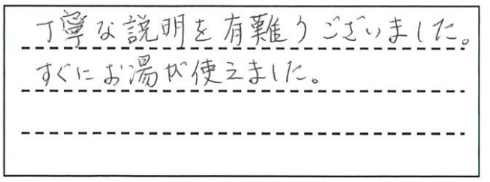 丁寧な説明を有難うございました。
すぐにお湯が使えました。